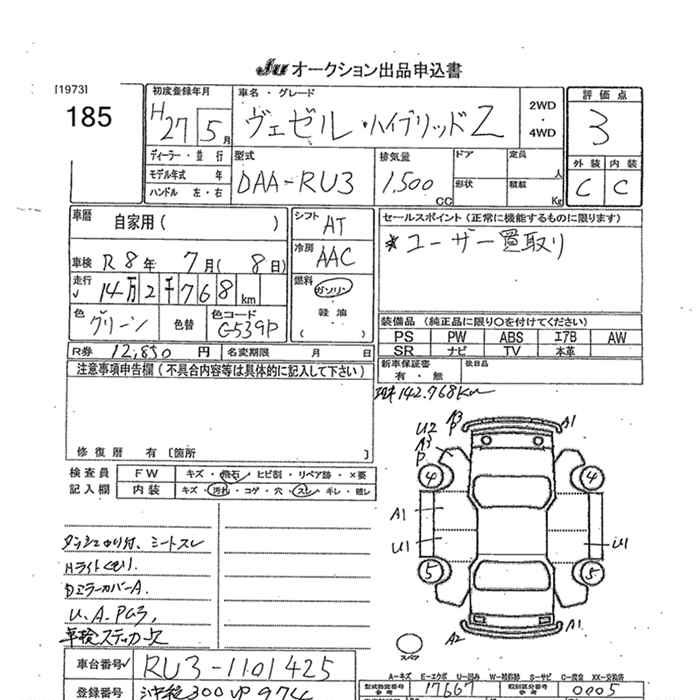 Ju オークション出品申込書
[1973]
185
初度登録年月
H27 5月
車名・グレード
ヴェゼル・ハイブリッド Z
2WD
・
4WD
評価点
3
ディーラー・並行
モデル年式 年
ハンドル 左・右
型式
DAA-RU3
排気量
1,500 CC
ドア
形状
定員 人
積載 Kg
外装 内装
C C
車歴 自家用( )
シフト AT
セールスポイント(正常に機能するものに限ります)
*ユーザー買取り
車検 R8年 7月(8日)
冷房 AAC
走行 14万2千768km
燃料 ガソリン
軽油
( )
色 グリーン 色替 色コード G539P
装備品(純正品に限り○を付けてください)
PS PW ABS エアB AW
SR ナビ TV 本革
R券 12,850円 名変期限 月 日
新車保証書
有・無
後日品
注意事項申告欄(不具合内容等は具体的に記入して下さい)
142.768Km
修復歴 有〔箇所 〕
検査員 FW キズ・飛石・ヒビ割・リペア跡・×要
記入欄 内装 キズ・汚れ・コゲ・穴・スレ・ギレ・破レ
A3
P
U2
A3
P
A1
4 4
A1
U1 U1
5 5
A2 A1
スペア
シートスレ
Hライトくもり
DミラーカバーA.
U.A.Pキズ
車検ステッカー
A-キズ E-エクボ U-凹み W-補修跡 S-サビ C-腐食 XX-交換済
車台番号 RU3-1101425
型式指定番号 17667 類別区分番号 0005
登録番号 300